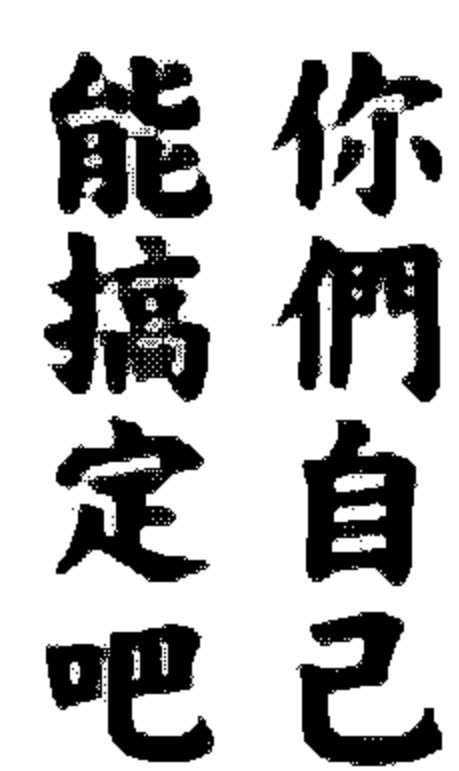 你們自己
能搞定吧